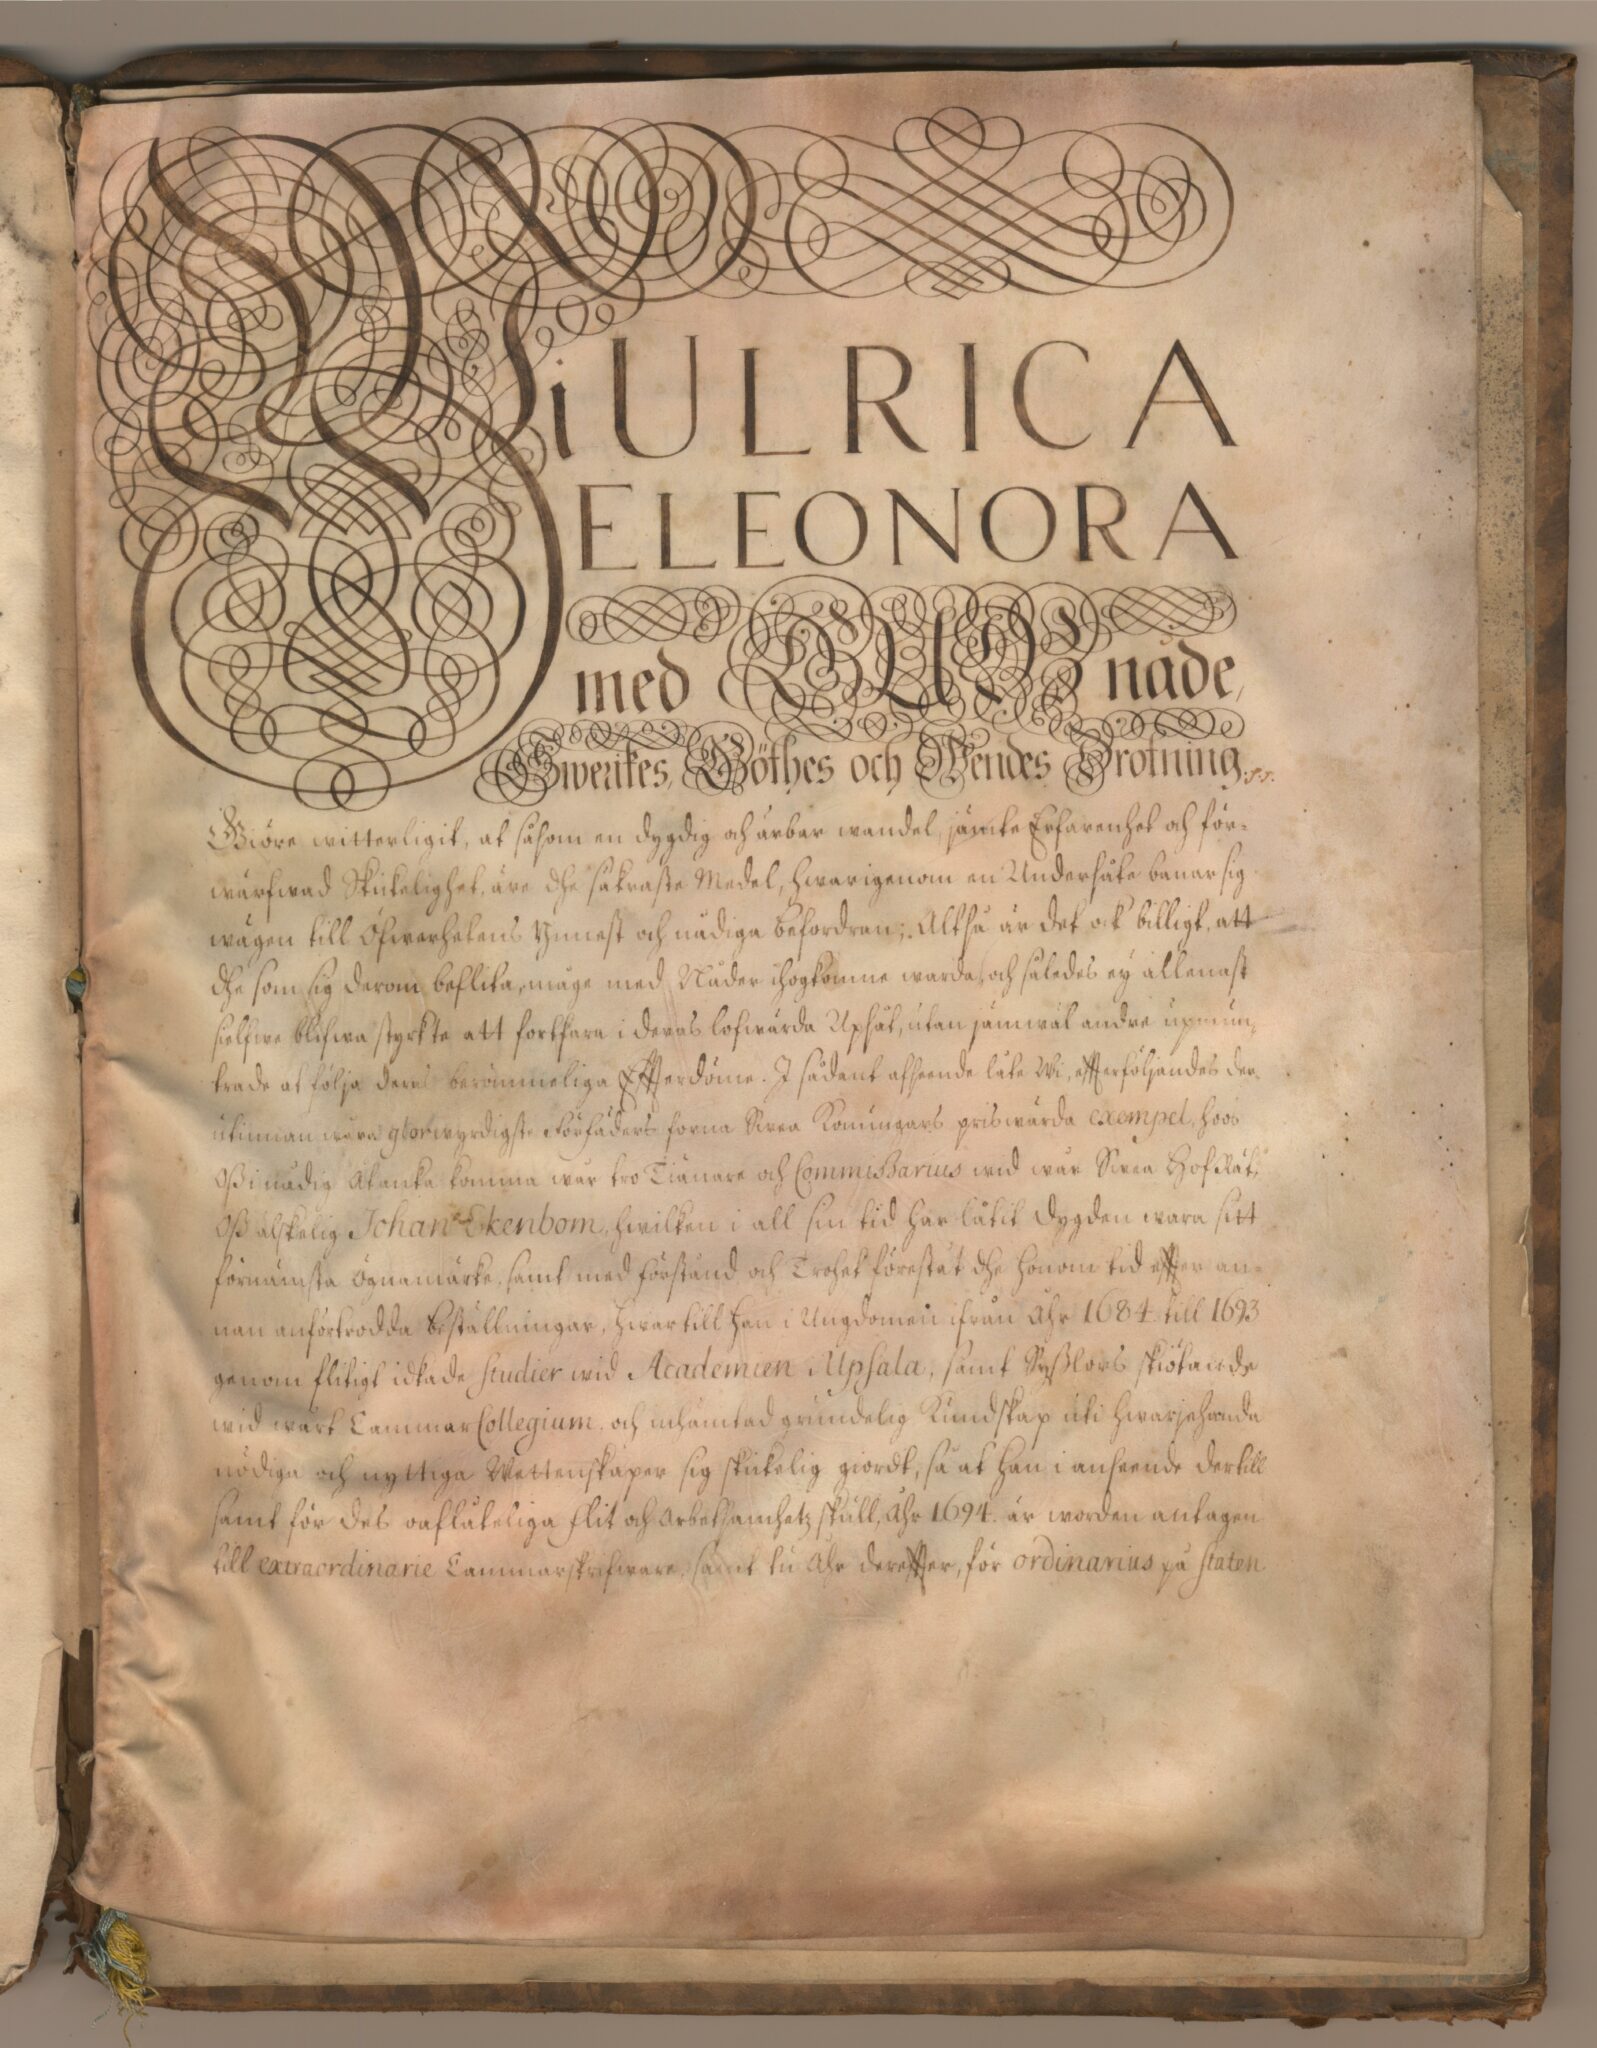 Wi ULRICA
ELEONORA
med GUDZ nåde,
Swerikes, Göthes och Wendes Drotning. ss.
Giöre witterligit, at såsom en dygdig och ärbar wandel, jämte Erfarenhet och för-
wärfwad Skickelighet, äre dhe säkraste Medel, hwarigenom en Undersåte banar sig
wägen till Öfwerhetens Ynnest och nådiga befordran; Altså är det ock billigt, att
dhe som sig derom beflita, måge med Nåder ihogkomne warda, och således ey allenast
sielfwe blifwa styrckte att fortfara i deras lofwärda Upsåt, utan jämwäl andre upmun-
trade at följa deras berömmeliga Effterdöme. I sådant afseende låte Wi, effterföljandes der-
utinnan wåra glorwyrdigste Förfäders forna Swea Konungars priswärda exempel, hoos
Oß i nådig Åtanka komma wår tro Tiänare och Commissarius wid wår Swea HofRätt,
Oß älskelig Johan Ekenbom, hwilken i all sin tid har låtit dygden wara sitt
förnämsta ögnamärke, samt med förstånd och Trohet förestått dhe honom tid effter an-
nan anförtrodda beställningar, hwartill han i Ungdomen ifrån Åhr 1684 till 1693
genom flitigt idkade studier wid Academien i Upsala, samt Syßlors skiötande
wid wårt CammarCollegium, och inhämtad grundelig Kundskap uti hwarjehanda
nödiga och nyttiga Wettenskaper sig skickelig giordt, så at han i anseende dertill
samt för des oaflåteliga flit och Arbetsamhetz skull, Åhr 1694. är worden antagen
till extraordinarie Cammarskrifware, samt tu Åhr dereffter, för ordinarius på staten